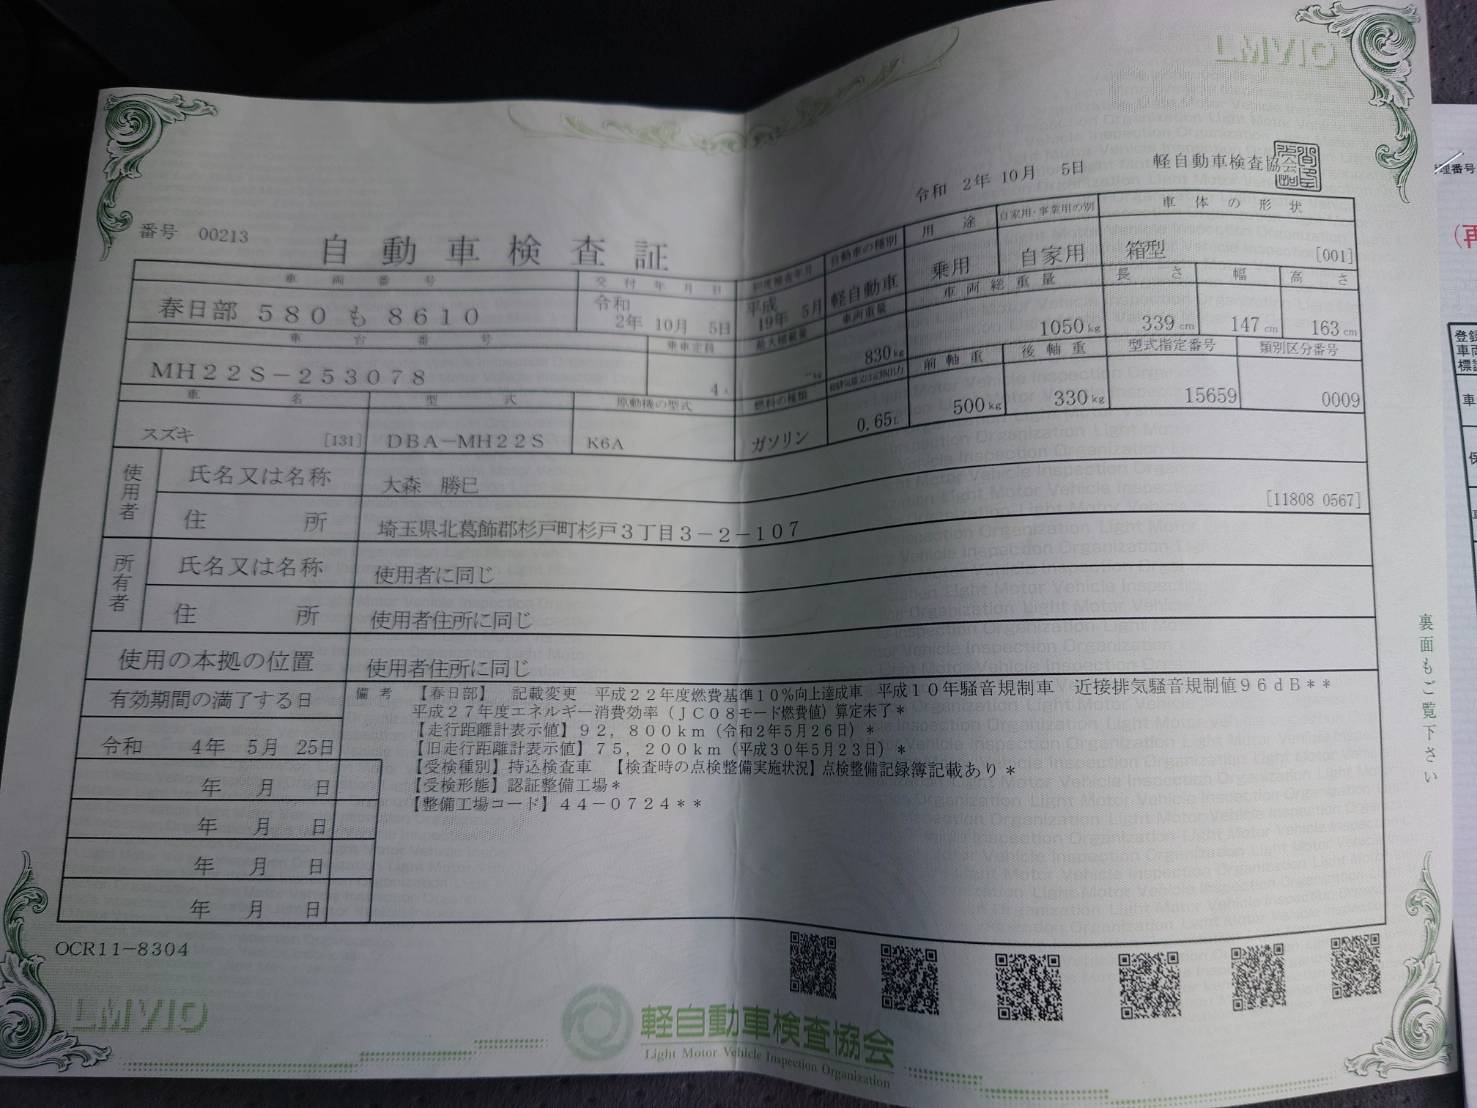 LMVIO
令和 2年 10月 5日 軽自動車検査協会
番号 00213
自動車検査証
車両番号 交付年月日 初度検査年月 自動車の種別 用途 自家用・事業用の別 車体の形状
春日部 580 も 8610 令和 2年 10月 5日 平成 19年 5月 軽自動車 乗用 自家用 箱型 [001]
車台番号 乗車定員 最大積載量 車両重量 車両総重量 長さ 幅 高さ
MH22S-253078 4人 -kg 830kg 1050kg 339cm 147cm 163cm
車名 型式 原動機の型式 燃料の種類 総排気量又は定格出力 前軸重 後軸重 型式指定番号 類別区分番号
スズキ [131] DBA-MH22S K6A ガソリン 0.65L 500kg 330kg 15659 0009
使用者 氏名又は名称 大森 勝巳
住所 埼玉県北葛飾郡杉戸町杉戸3丁目3-2-107 [11808 0567]
所有者 氏名又は名称 使用者に同じ
住所 使用者住所に同じ
使用の本拠の位置 使用者住所に同じ
有効期間の満了する日
令和 4年 5月 25日
年 月 日
年 月 日
年 月 日
年 月 日
備考 【春日部】 記載変更 平成22年度燃費基準10%向上達成車 平成10年騒音規制車 近接排気騒音規制値96dB**
平成27年度エネルギー消費効率(JC08モード燃費値)算定未了*
【走行距離計表示値】92,800km(令和2年5月26日)*
【旧走行距離計表示値】75,200km(平成30年5月23日)*
【受検種別】持込検査車 【検査時の点検整備実施状況】点検整備記録簿記載あり*
【受検形態】認証整備工場*
【整備工場コード】44-0724**
裏面もご覧下さい
OCR11-8304
LMVIO
軽自動車検査協会
Light Motor Vehicle Inspection Organization
理番号
(再